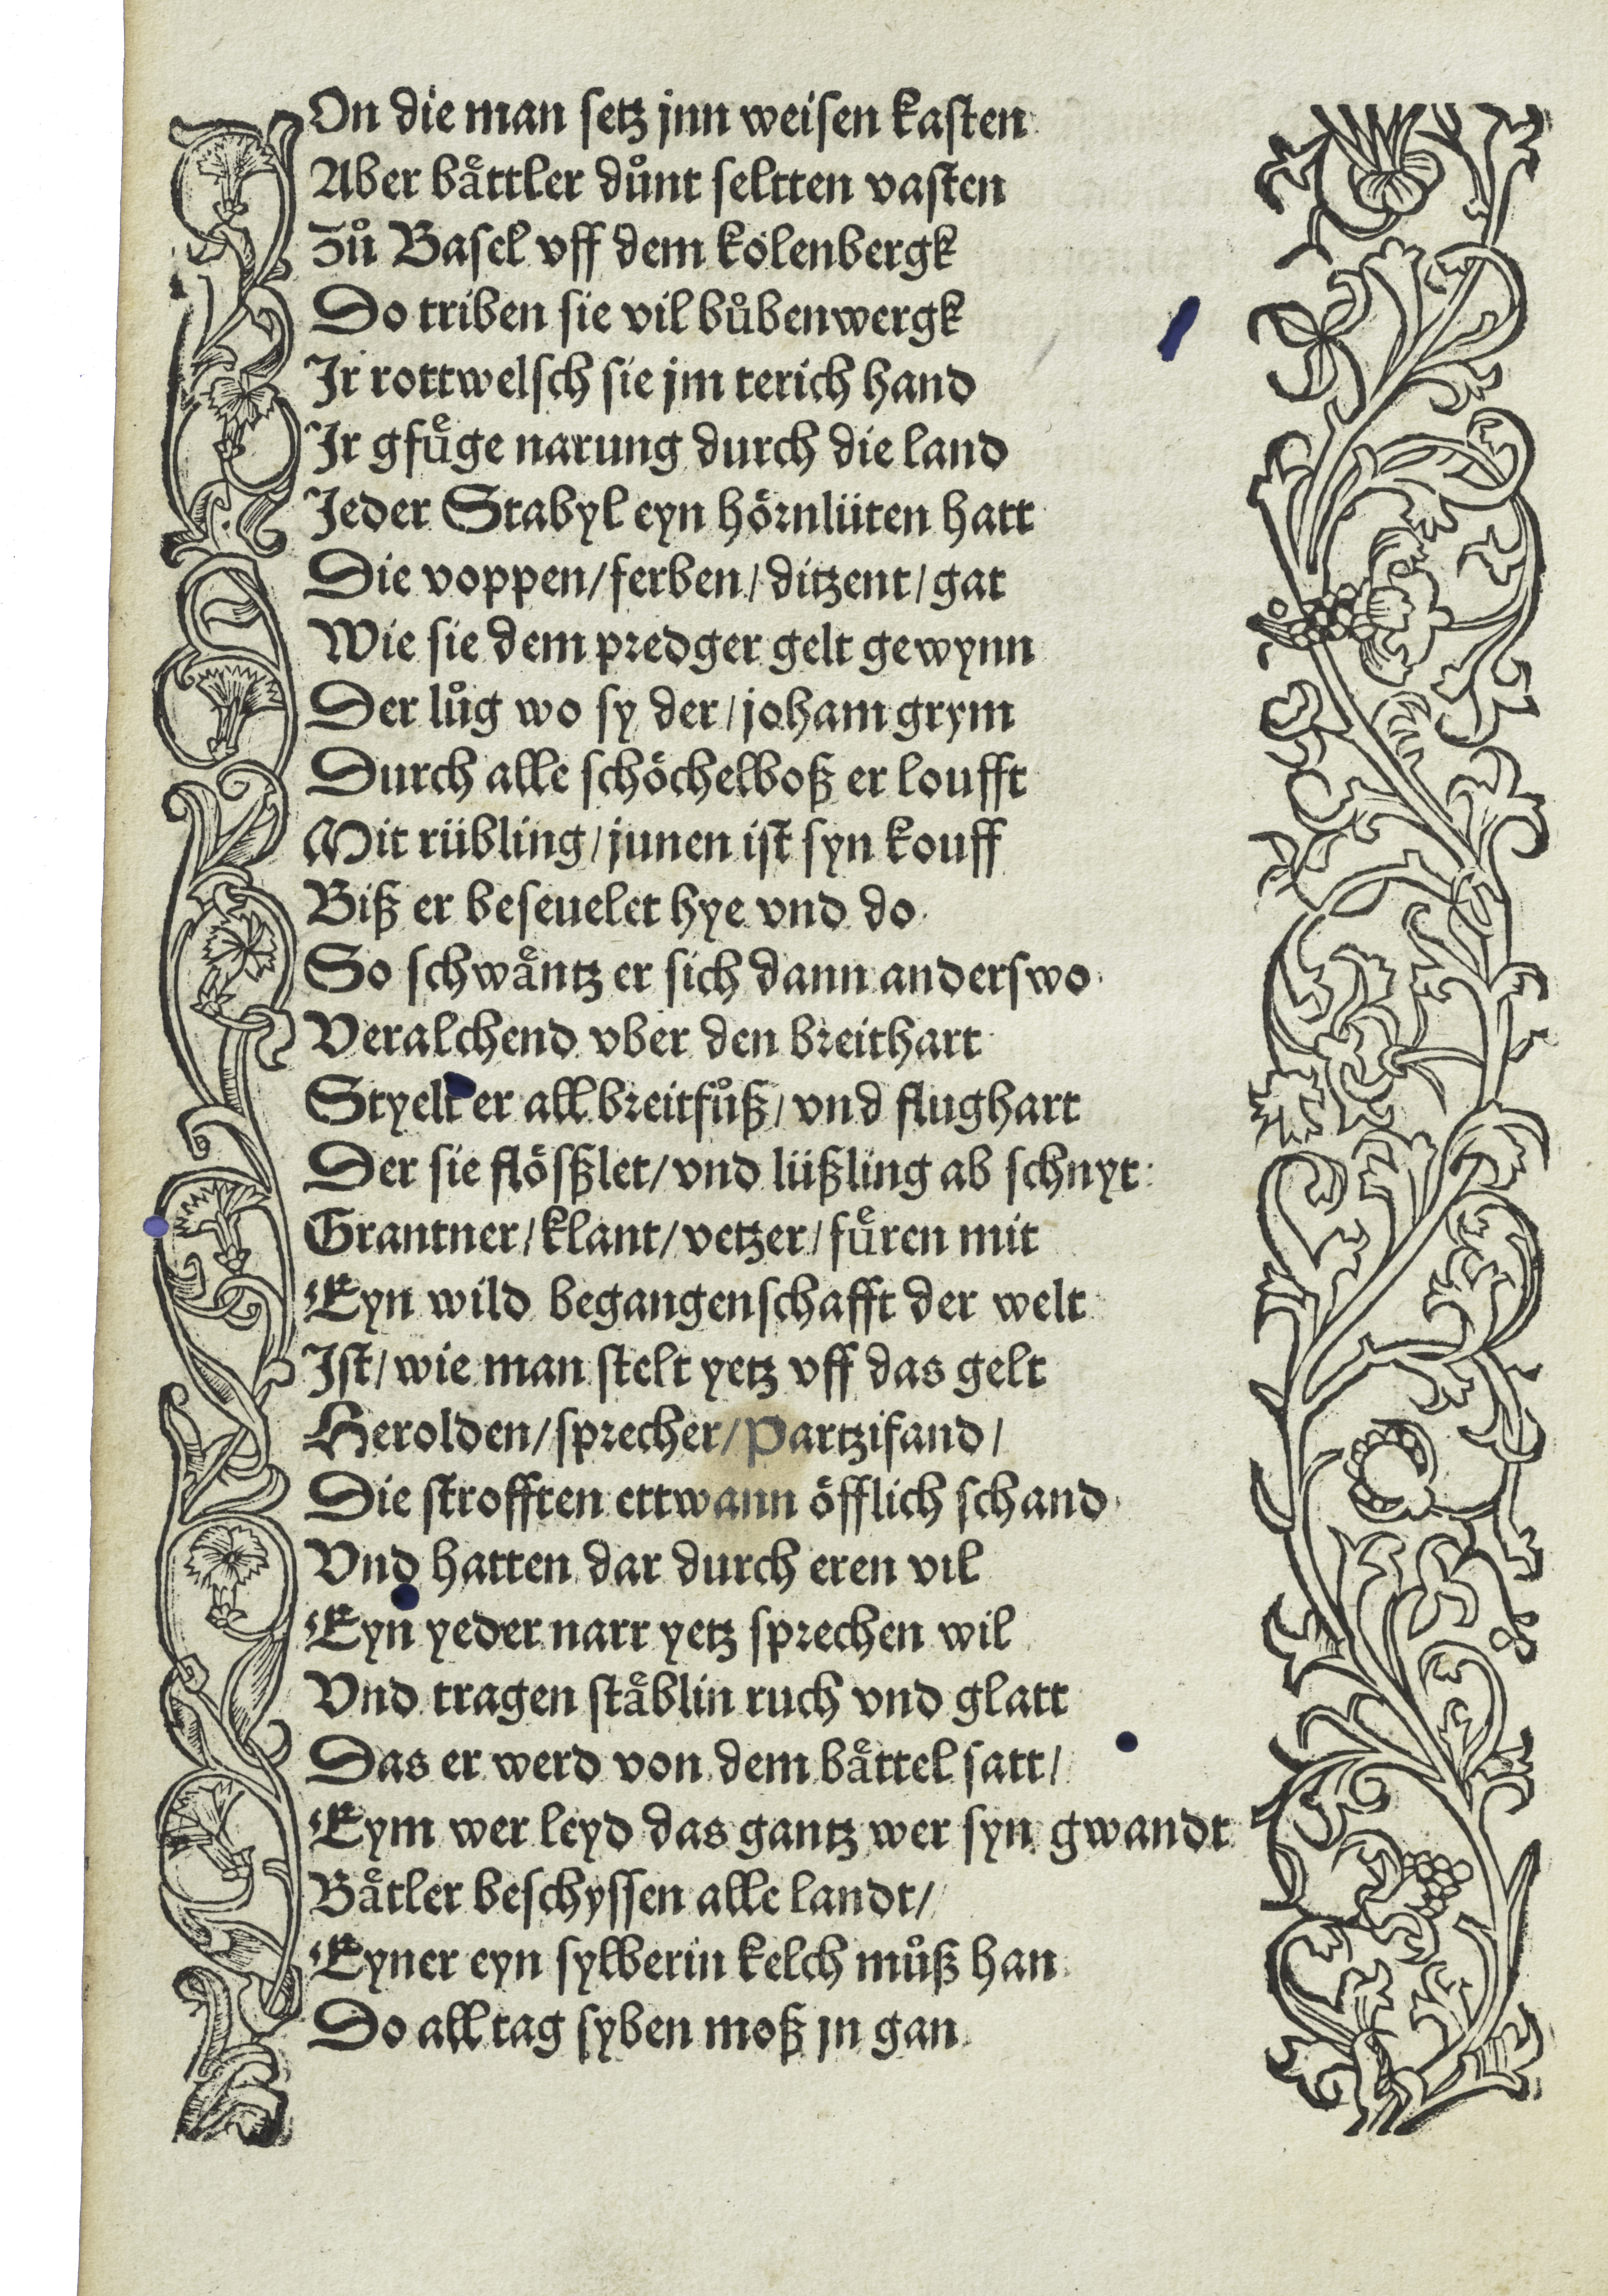 On die man setz jnn weisen kasten
Aber baͤttler duͦnt seltten vasten
Zuͦ Basel vff dem kolenbergk
Do triben sie vil buͦbenwergk
Jr rottwelsch sie jm terich hand
Jr gfuͤge narung durch die land
Jeder Stabyl eyn hörnlüten hatt
Die voppen/ferben/ditzent/gat
Wie sie dem predger gelt gewynn
Der luͦg wo sy der/joham grym
Durch alle schöchelboß er loufft
Mit rübling/junen ist syn kouff
Biß er beseuelet hye vnd do
So schwaͤntz er sich dann anderswo
Veralchend vber den breithart
Styelt er all breitfuͦß/vnd flughart
Der sie flösßlet/vnd lüßling ab schnyt
Grantner/klant/vetzer/fuͤren mit
Eyn wild begangenschafft der welt
Jst/wie man stelt yetz vff das gelt
Herolden/sprecher/Partzifand/
Die strofften ettwann öfflich schand
Vnd hatten dar durch eren vil
Eyn yeder narr yetz sprechen wil
Vnd tragen staͤblin ruch vnd glatt
Das er werd von dem baͤttel satt/
Eym wer leyd das gantz wer syn gwandt
Baͤtler beschyssen alle landt/
Eyner eyn sylberin kelch muͦß han
Do all tag syben moß jn gan